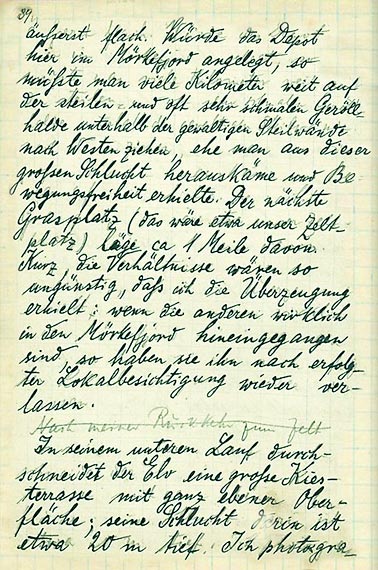 39)
äußerst flach. Würde das Depot
hier im Mörkefjord angelegt, so
müßte man viele Kilometer weit auf
der steilen und oft sehr schmalen Geröll-
halde unterhalb der gewaltigen Steilwände
nach Westen ziehen, ehe man aus dieser
großen Schlucht herauskäme und Be-
wegungsfreiheit erhielte. Der nächste
Grasplatz (das wäre etwa unser Zelt-
platz) läge ca 1 Meile davon.
Kurz, die Verhältnisse wären so
ungünstig, daß ich die Überzeugung
erhielt: wenn die anderen wirklich
in den Mörkefjord hineingegangen
sind, so haben sie ihn nach erfolg-
ter Lokalbesichtigung wieder ver-
lassen.
Nach meiner Rückkehr zum Zelt
In seinem unteren Lauf durch-
schneidet der Elv eine große Kies-
terrasse mit ganz ebener Ober-
fläche; seine Schlucht darin ist
etwa 20 m tief. Ich photogra-